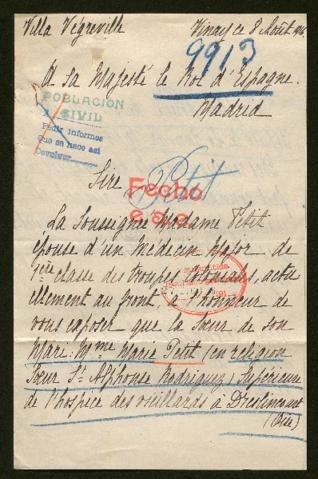 Villa Végreville Vinay ce 8 Août 1916
9913
A Sa Majesté le Roi d'Espagne.
Madrid
POBLACIÓN
CIVIL
Pedir informes
Que se hace así
Devolver
Sire,
Petit
Fecho
La Soussignée Madame Petit
épouse d'un Médecin Major de
1ère classe des Troupes Coloniales, actu
ellement au front, a l'honneur de
vous exposer que la Sœur de son
Mari Mme Marie Petit (en religion
Sœur St Alphonse Rodriguez) Supérieure
de l'hospice des vieillards à Dreslincourt
(Oise)